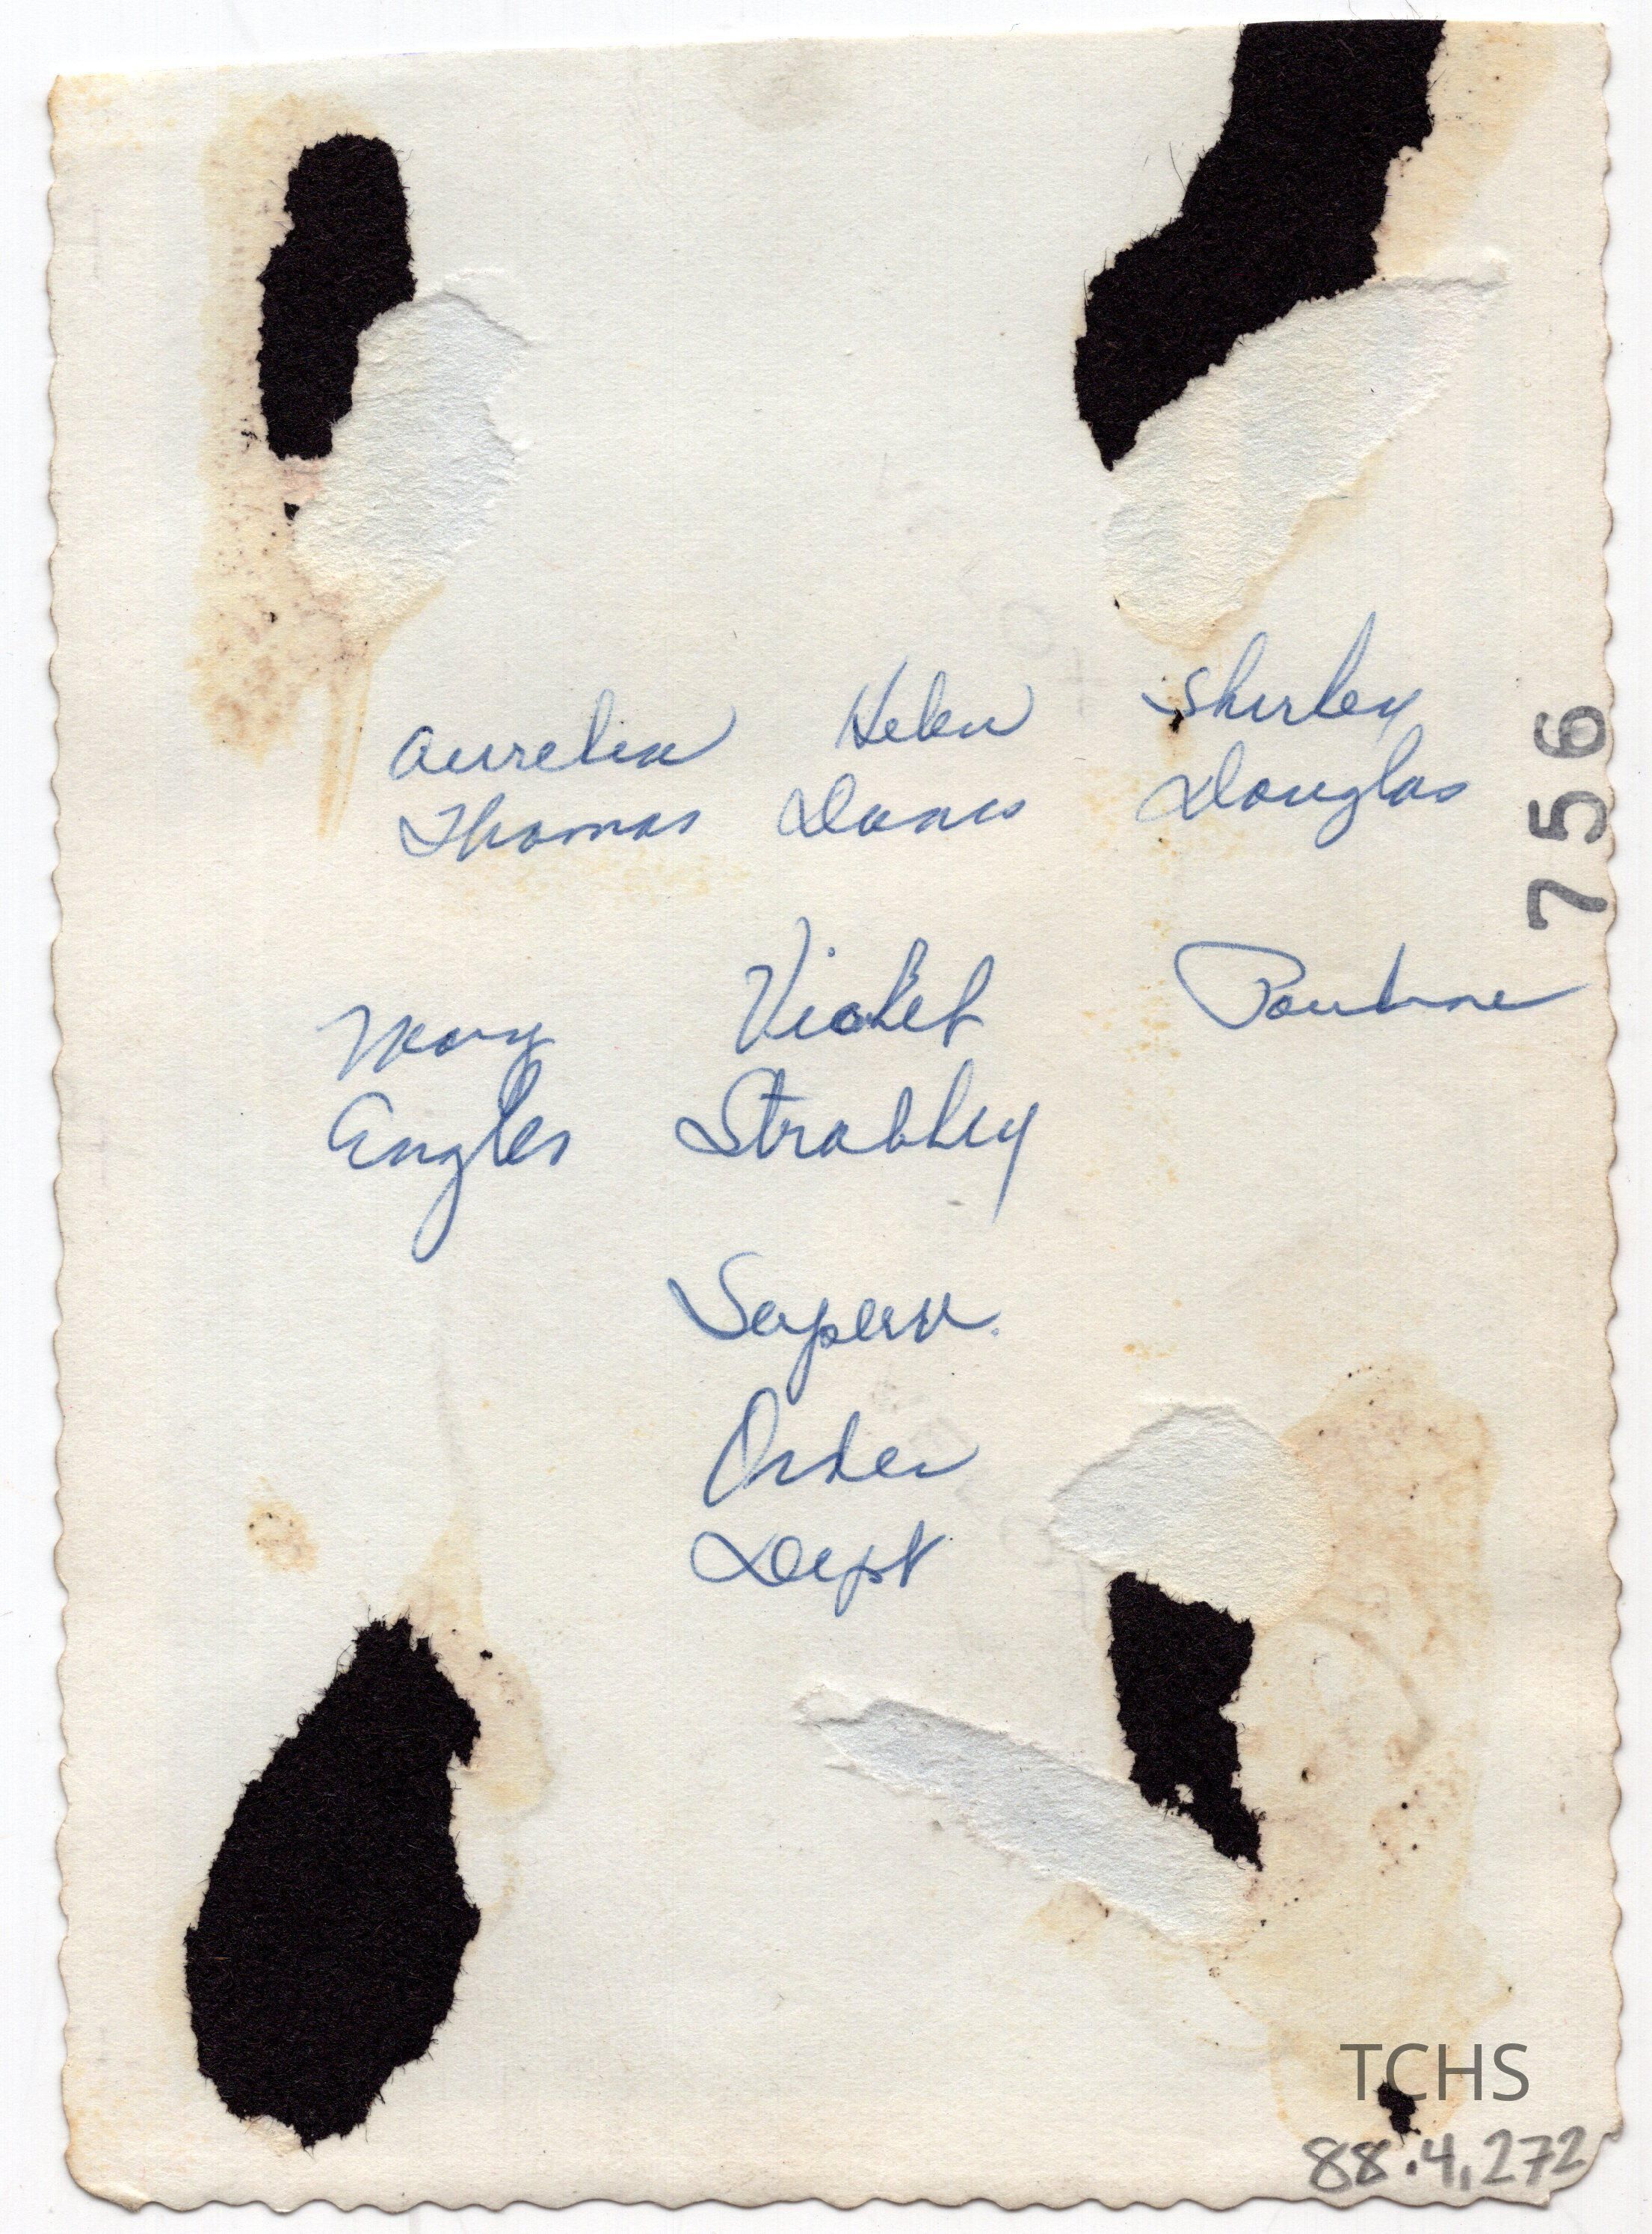 Aurelia Helen Shirley
Thomas Davis Douglas
Mary Violet Pauline
Engles Strabley
Superv.
Order
Dept
756
TCHS
88.4.272